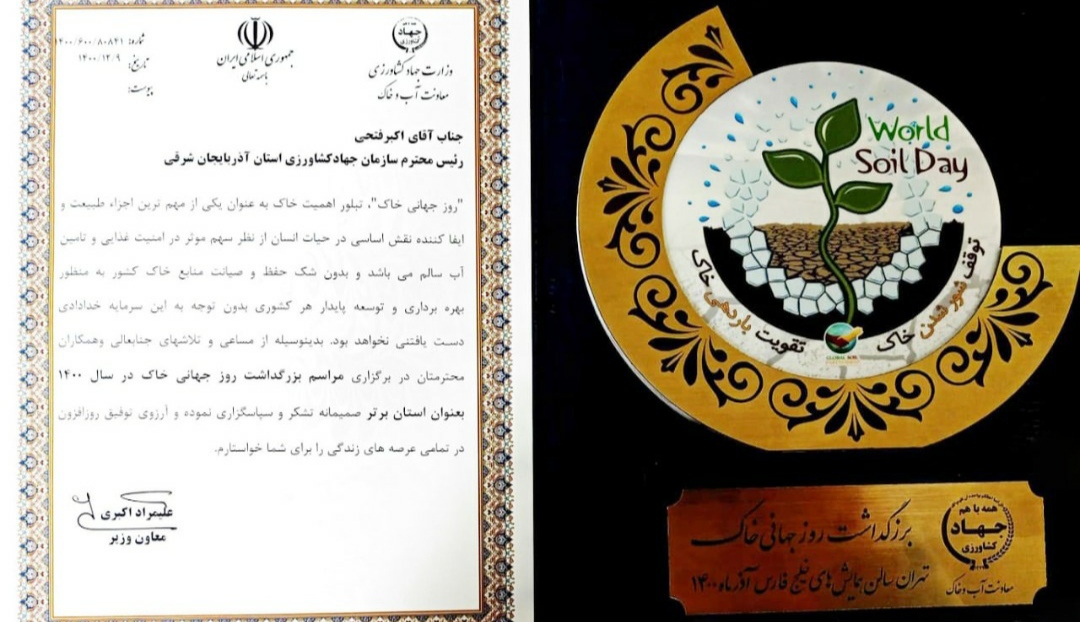 جهاد
کشاورزی
وزارت جهاد کشاورزی
معاونت آب و خاک
جمهوری اسلامی ایران
باسمه تعالی
شماره: ۱۴۰۰/۶۰۰/۸۰۸۴۱
تاریخ: ۱۴۰۰/۱۲/۹
پیوست:
جناب آقای اکبرفتحی
رئیس محترم سازمان جهادکشاورزی استان آذربایجان شرقی
"روز جهانی خاک"، تبلور اهمیت خاک به عنوان یکی از مهم ترین اجزاء طبیعت و
ایفا کننده نقش اساسی در حیات انسان از نظر سهم موثر در امنیت غذایی و تامین
آب سالم می باشد و بدون شک حفظ و صیانت منابع خاک کشور به منظور
بهره برداری و توسعه پایدار هر کشوری بدون توجه به این سرمایه خدادادی
دست یافتنی نخواهد بود. بدینوسیله از مساعی و تلاشهای جنابعالی وهمکاران
محترمتان در برگزاری مراسم بزرگداشت روز جهانی خاک در سال ۱۴۰۰
بعنوان استان برتر صمیمانه تشکر و سپاسگزاری نموده و آرزوی توفیق روزافزون
در تمامی عرصه های زندگی را برای شما خواستارم.
علیمراد اکبری
معاون وزیر
World
Soil Day
توقف شور شدن خاک
تقویت باردهی خاک
GLOBAL SOIL
همه با هم
جهاد
کشاورزی
معاونت آب و خاک
بزرگداشت روز جهانی خاک
تهران سالن همایش های خلیج فارس آذر ماه ۱۴۰۰